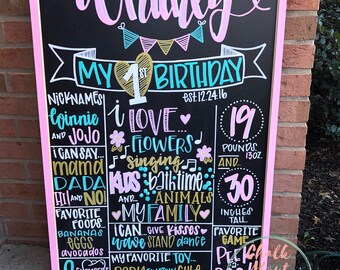 Whitney
MY 1ST BIRTHDAY
est. 12.24.16
NICKNAMES
Ginnie
AND JOJO
I CAN SAY...
mama
DADA
HI! AND NO!
FAVORITE
FOODS
BANANAS
EGGS
avocados
i
LOVE...
FLOWERS
singing
KIDS bathtime
ANIMALS
MY FAMILY
I CAN GIVE KISSES
wave STAND dance
MY FAVORITE TOY
19
POUNDS
13OZ.
AND...
30
INCHES
TALL
FAVORITE
GAME
Chalk